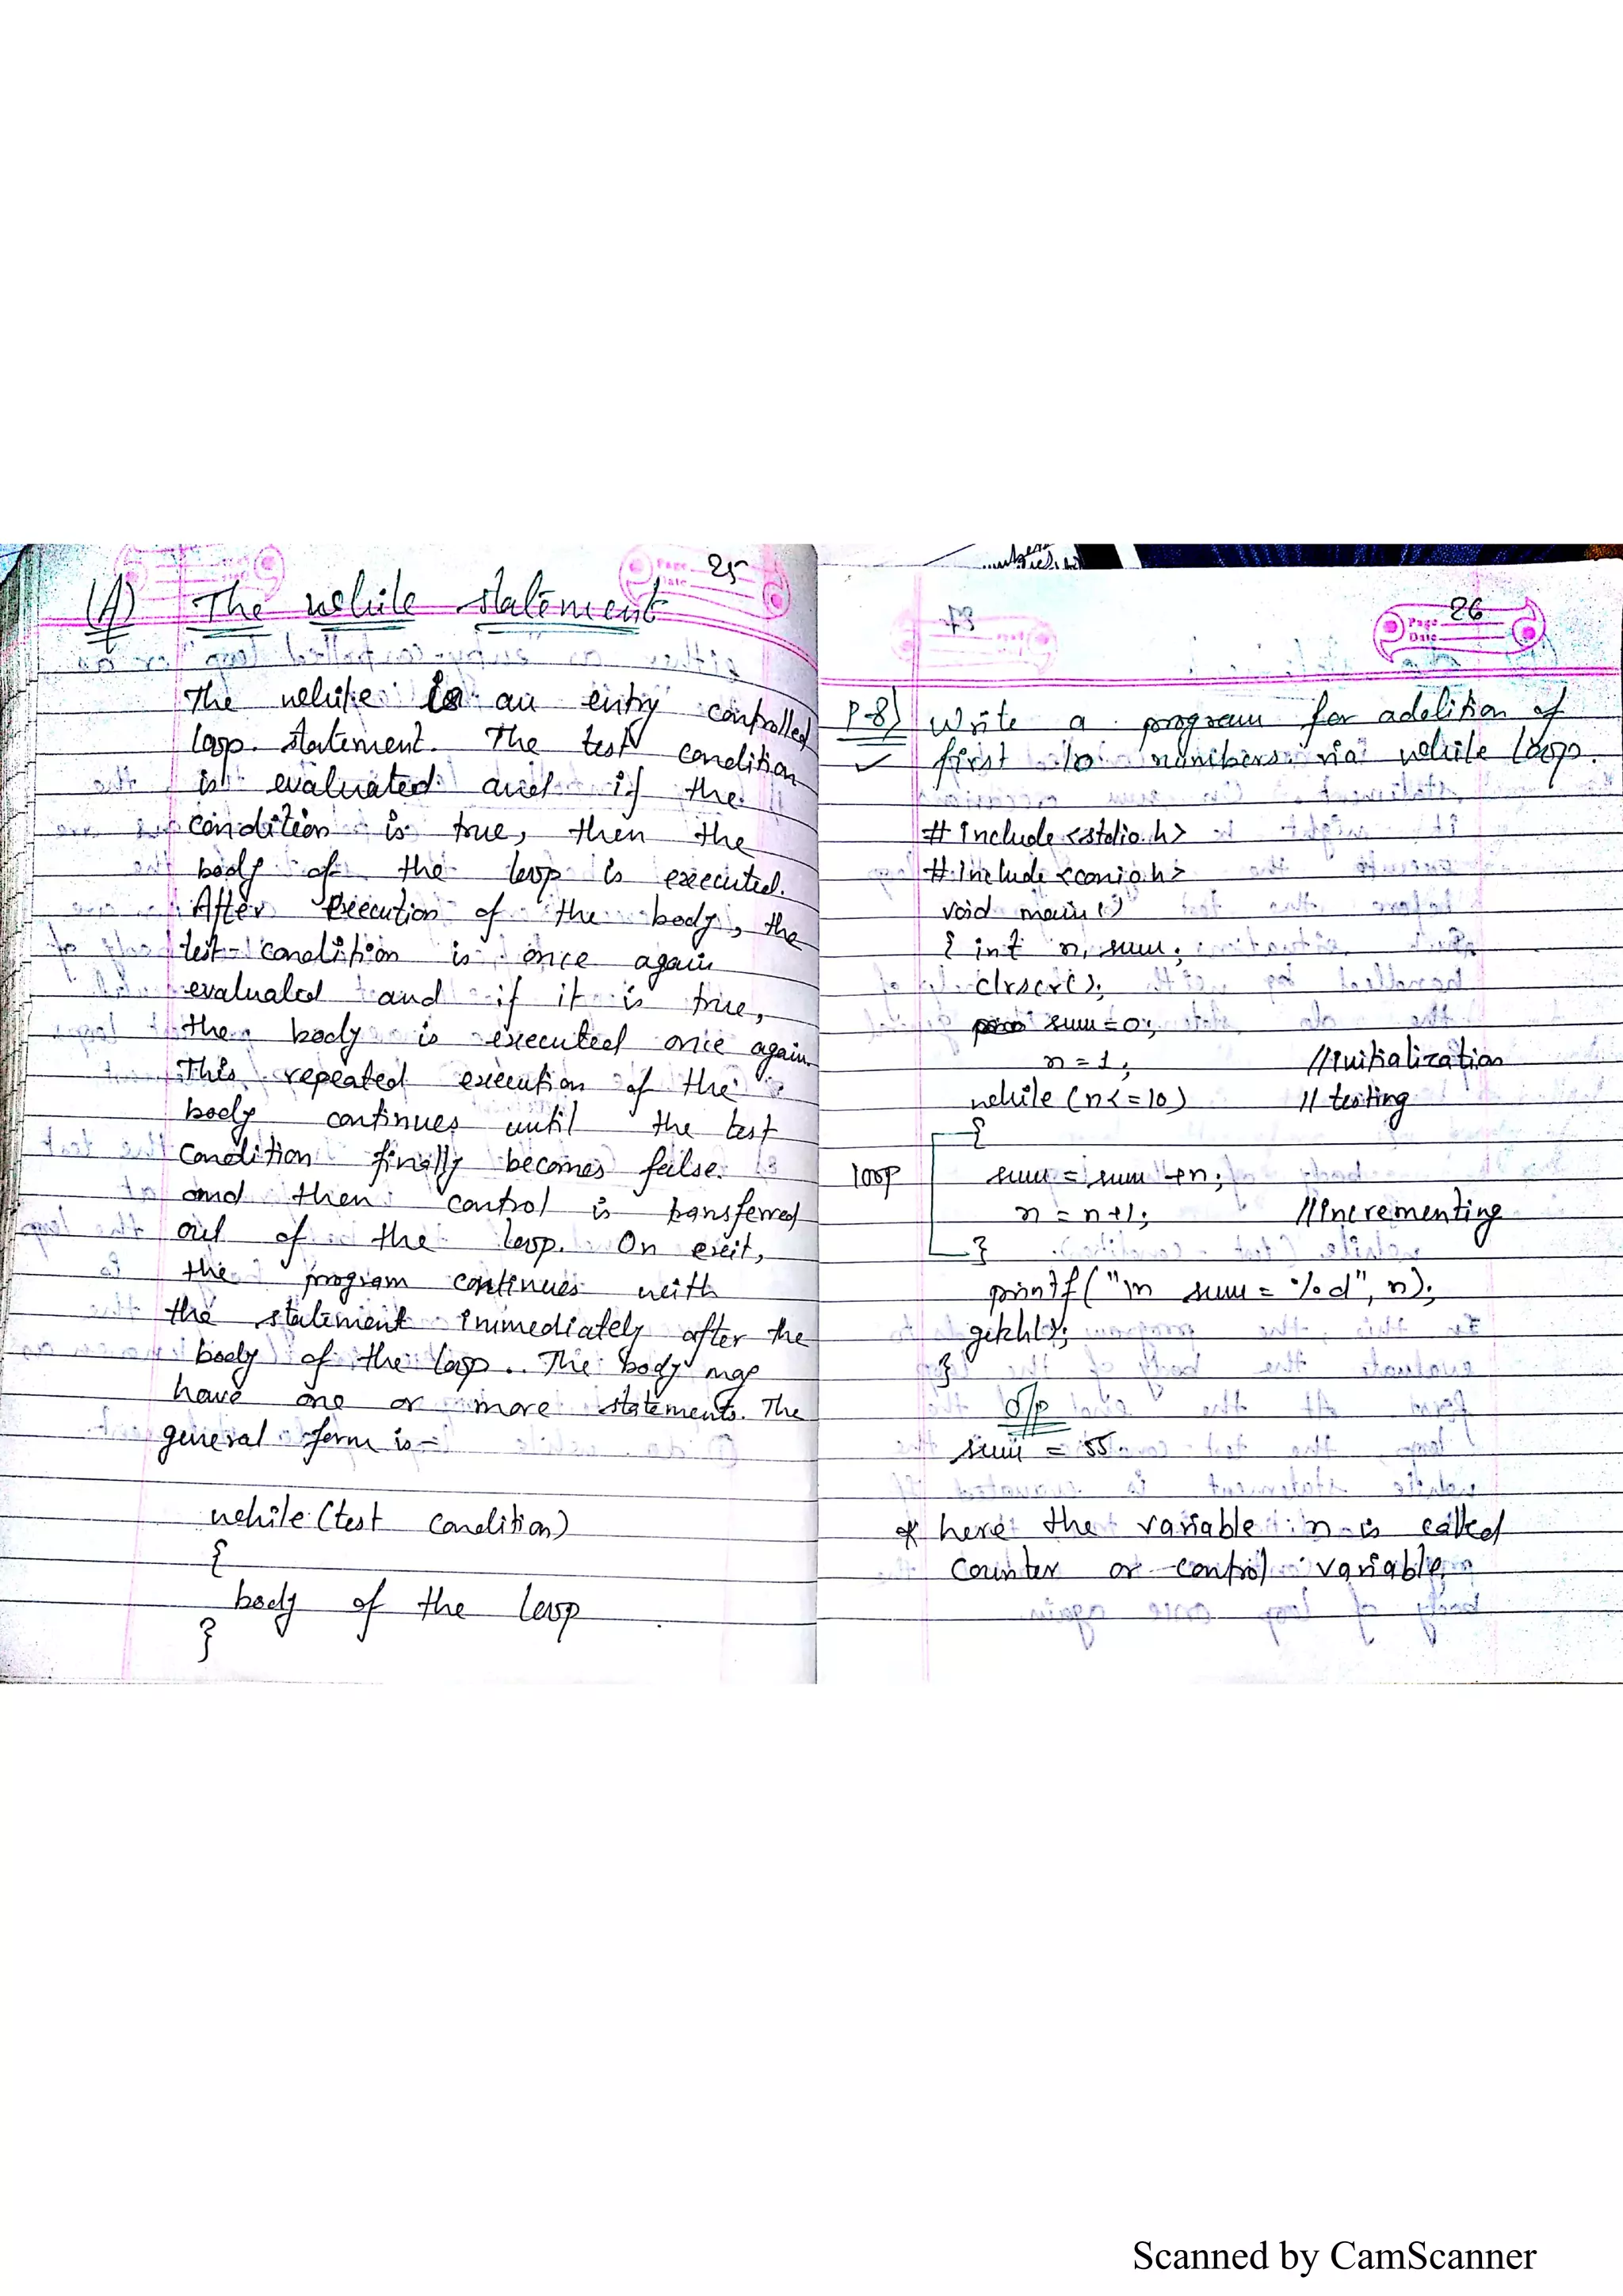 25
(A) The while statement
The while is an entry controlled
loop statement. The test condition
is evaluated and if the
condition is true, then the
body of the loop is executed.
After execution of the body, the
test-condition is once again
evaluated and if it is true,
the body is executed once again.
This repeated execution of the
body continues until the test
condition finally becomes false.
and then control is transferred
out of the loop. On exit,
the program continues with
the statement immediately after the
body of the loop. The body may
have one or more statements. The
general form is -
while (test condition)
{
body of the loop
}
26
P-8) Write a program for addition of
first 10 numbers via while loop.
# include <stdio.h>
# include <conio.h>
void main()
{ int n, sum;
clrscr();
sum = 0;
n = 1; //initialization
while (n<=10) // testing
{
loop sum = sum +n;
n = n+1; //incrementing
}
printf("\n sum = %d", n);
}
O/p
sum = 55
* here the variable n is called
counter or control variable.
Scanned by CamScanner